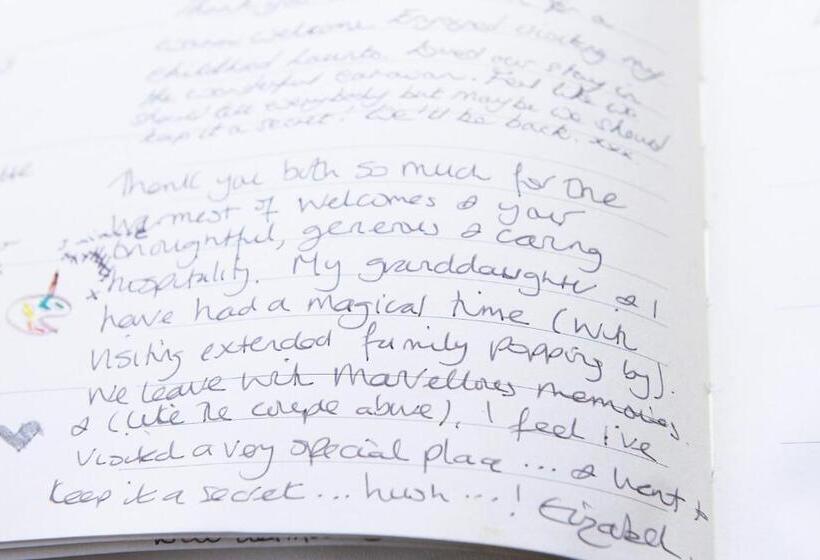 Thank you for a
warm welcome. Enjoyed visiting my
childhood haunts. Loved our stay in
the wonderful caravan. Feel like we
should tell everybody but maybe we should
keep it a secret! We'll be back. xxx
Thank you both so much for the
warmest of welcomes & your
thoughtful, generous & caring
hospitality. My granddaughter & I
have had a magical time (with
visiting extended family popping by).
We leave with marvellous memories
& (like the couple above), I feel I've
visited a very special place ... & want to
keep it a secret ... hush ...! Elizabeth